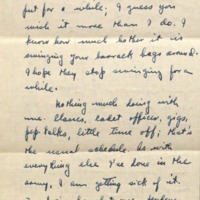 put for a while; I guess you
wish it more than I do. I
know how much bother it is
swinging your barrack bags around.
I hope they stop swinging for a
while.
Nothing much doing with
me. Classes, cadet officers, gigs,
pep talks, little time off; that's
the usual schedule. As with
everything else I've done in the
army, I am getting sick of it.